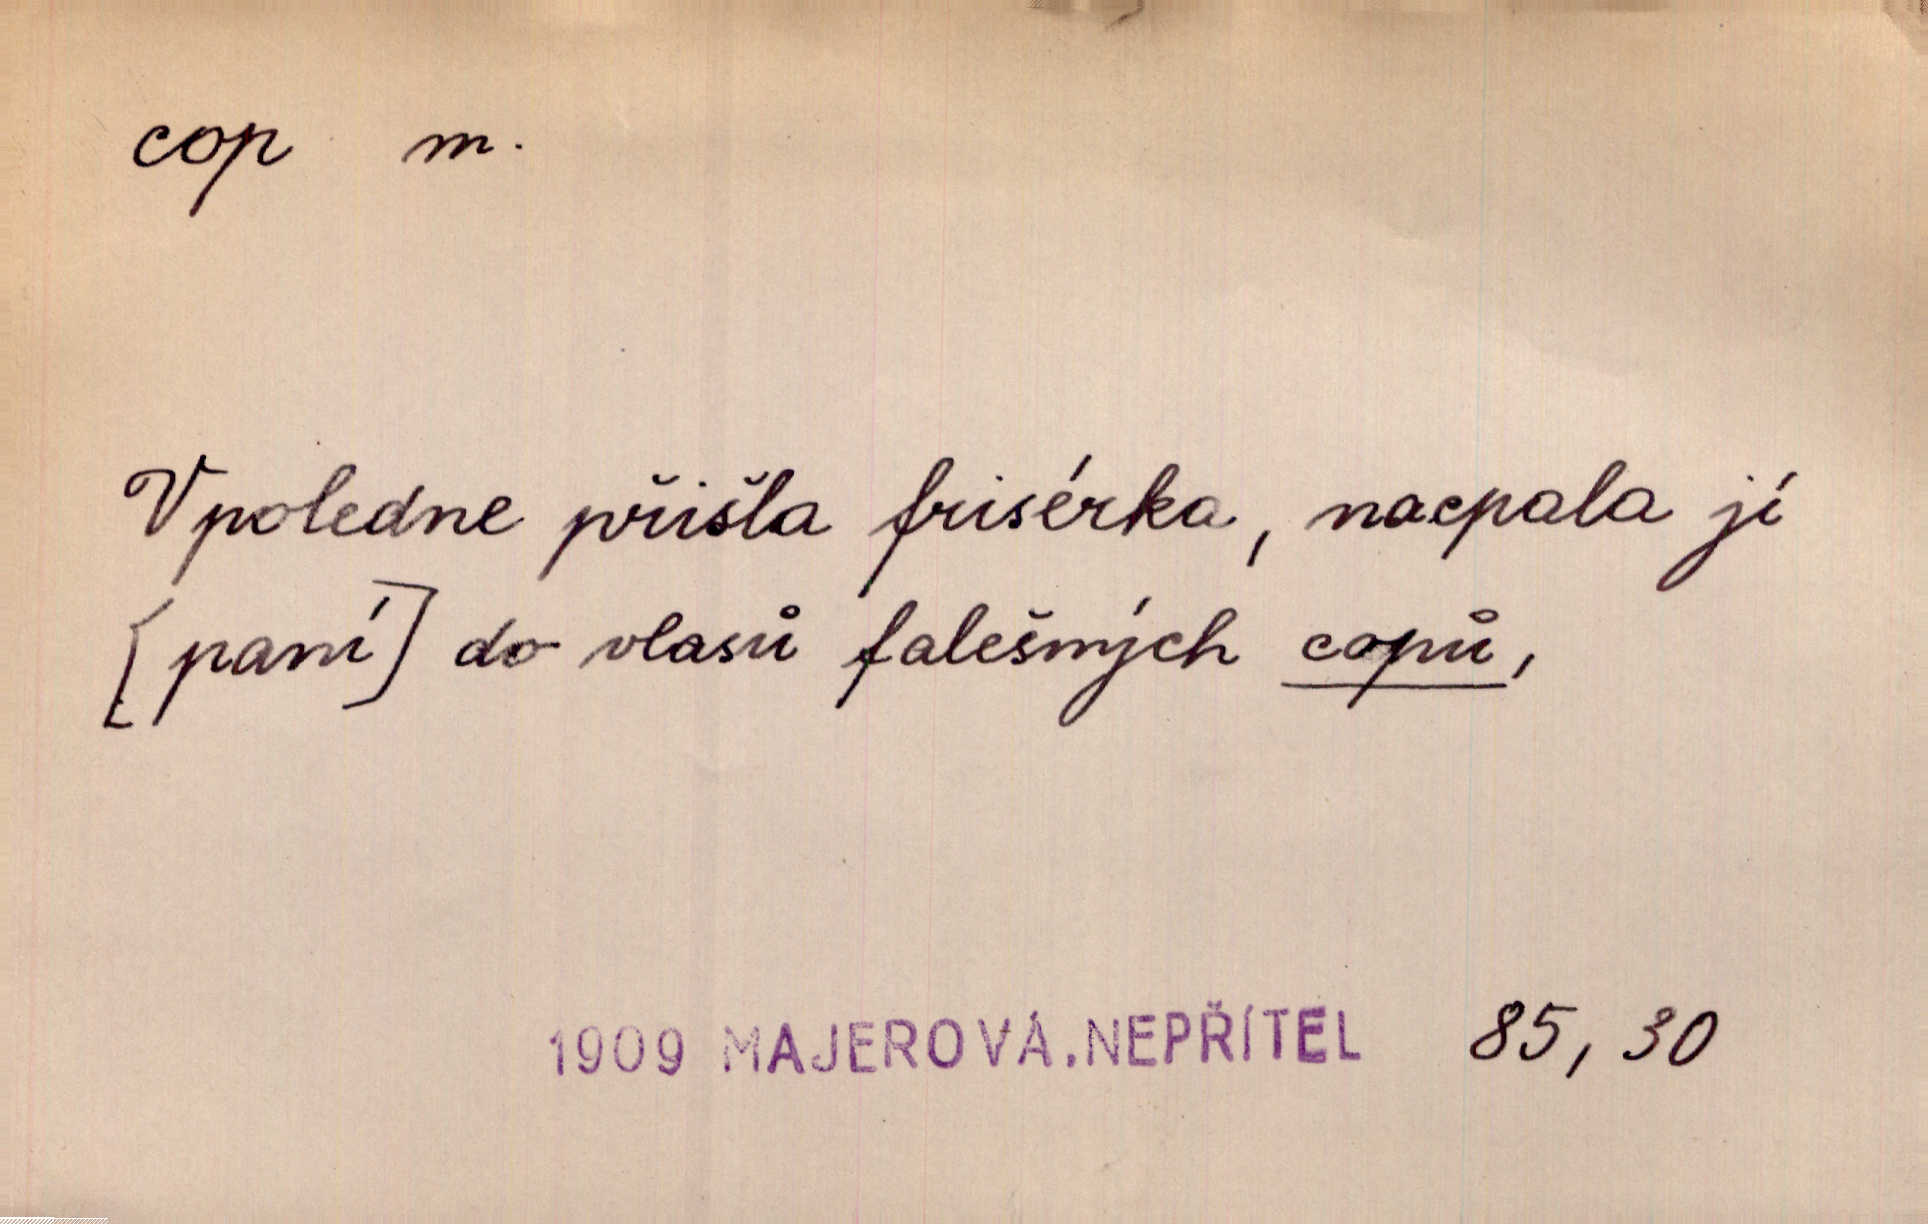 cop m.
V poledne přišla frisérka, nacpala jí
[paní] do vlasů falešných copů,
1909 MAJEROVÁ.NEPŘÍTEL 85, 30